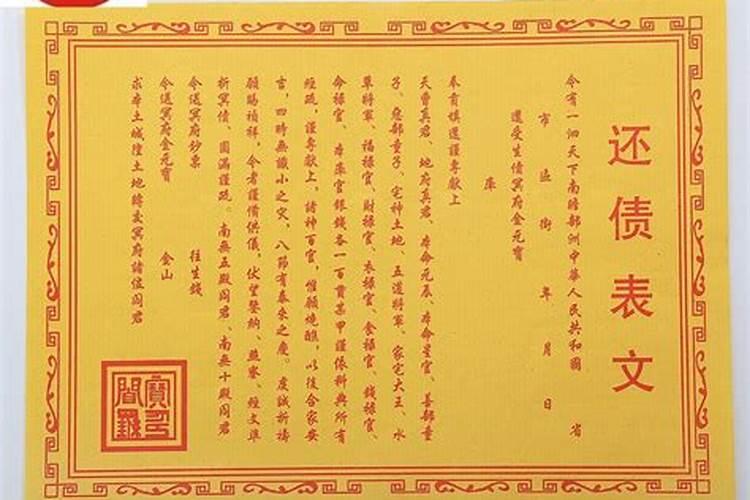 还债表文
今有一泗天下南瞻部洲中華人民共和國 省
市 區 街 年 月 日
還受生債冥府金元寶
庫
奉貢填還謹專献上
天曹真君、地府真君、本命元辰、本命星官、善部童
子、惡部童子、宅神土地、五道將軍、家宅大王、水
草將軍、福禄官、財禄官、衣禄官、食禄官、錢禄官、
命禄官、本庫官銀錢各一百貫某甲謹依科典所有
經疏，謹專献上，諸神百官，惟願燒醮，以後合家安
言，四時無識小之灾，八節有泰來之慶。虔誠祈禱
願賜禎祥，令者謹備供儀，伏望鑒納、燕寥、經文準
折冥債、圆滿謹疏。南無五殿阎君、南無十殿阎君
令送冥府鈔票 往生錢
令送冥府金元寶 金山
求本土城隍土地轉交冥府諸位阎君